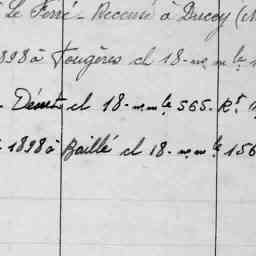 Le Ferré - Recensé à Ducey (M
1898 à Fougères cl 18 - nº mle 1
- Décédé cl 18 - nº mle 565. Rt
1898 à Baillé cl 18 - nº mle 156